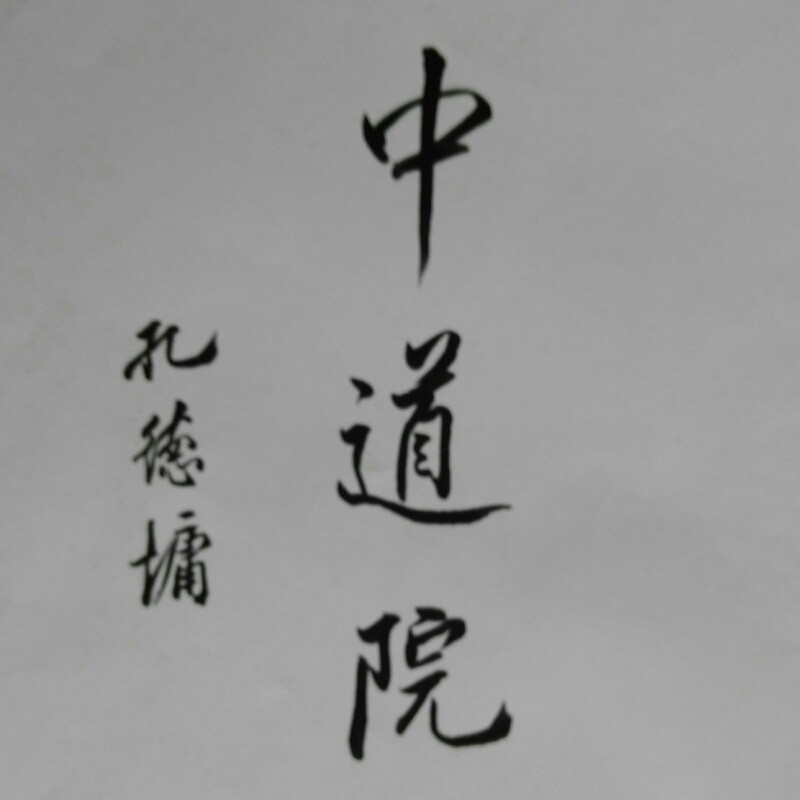 中道院
孔德墉